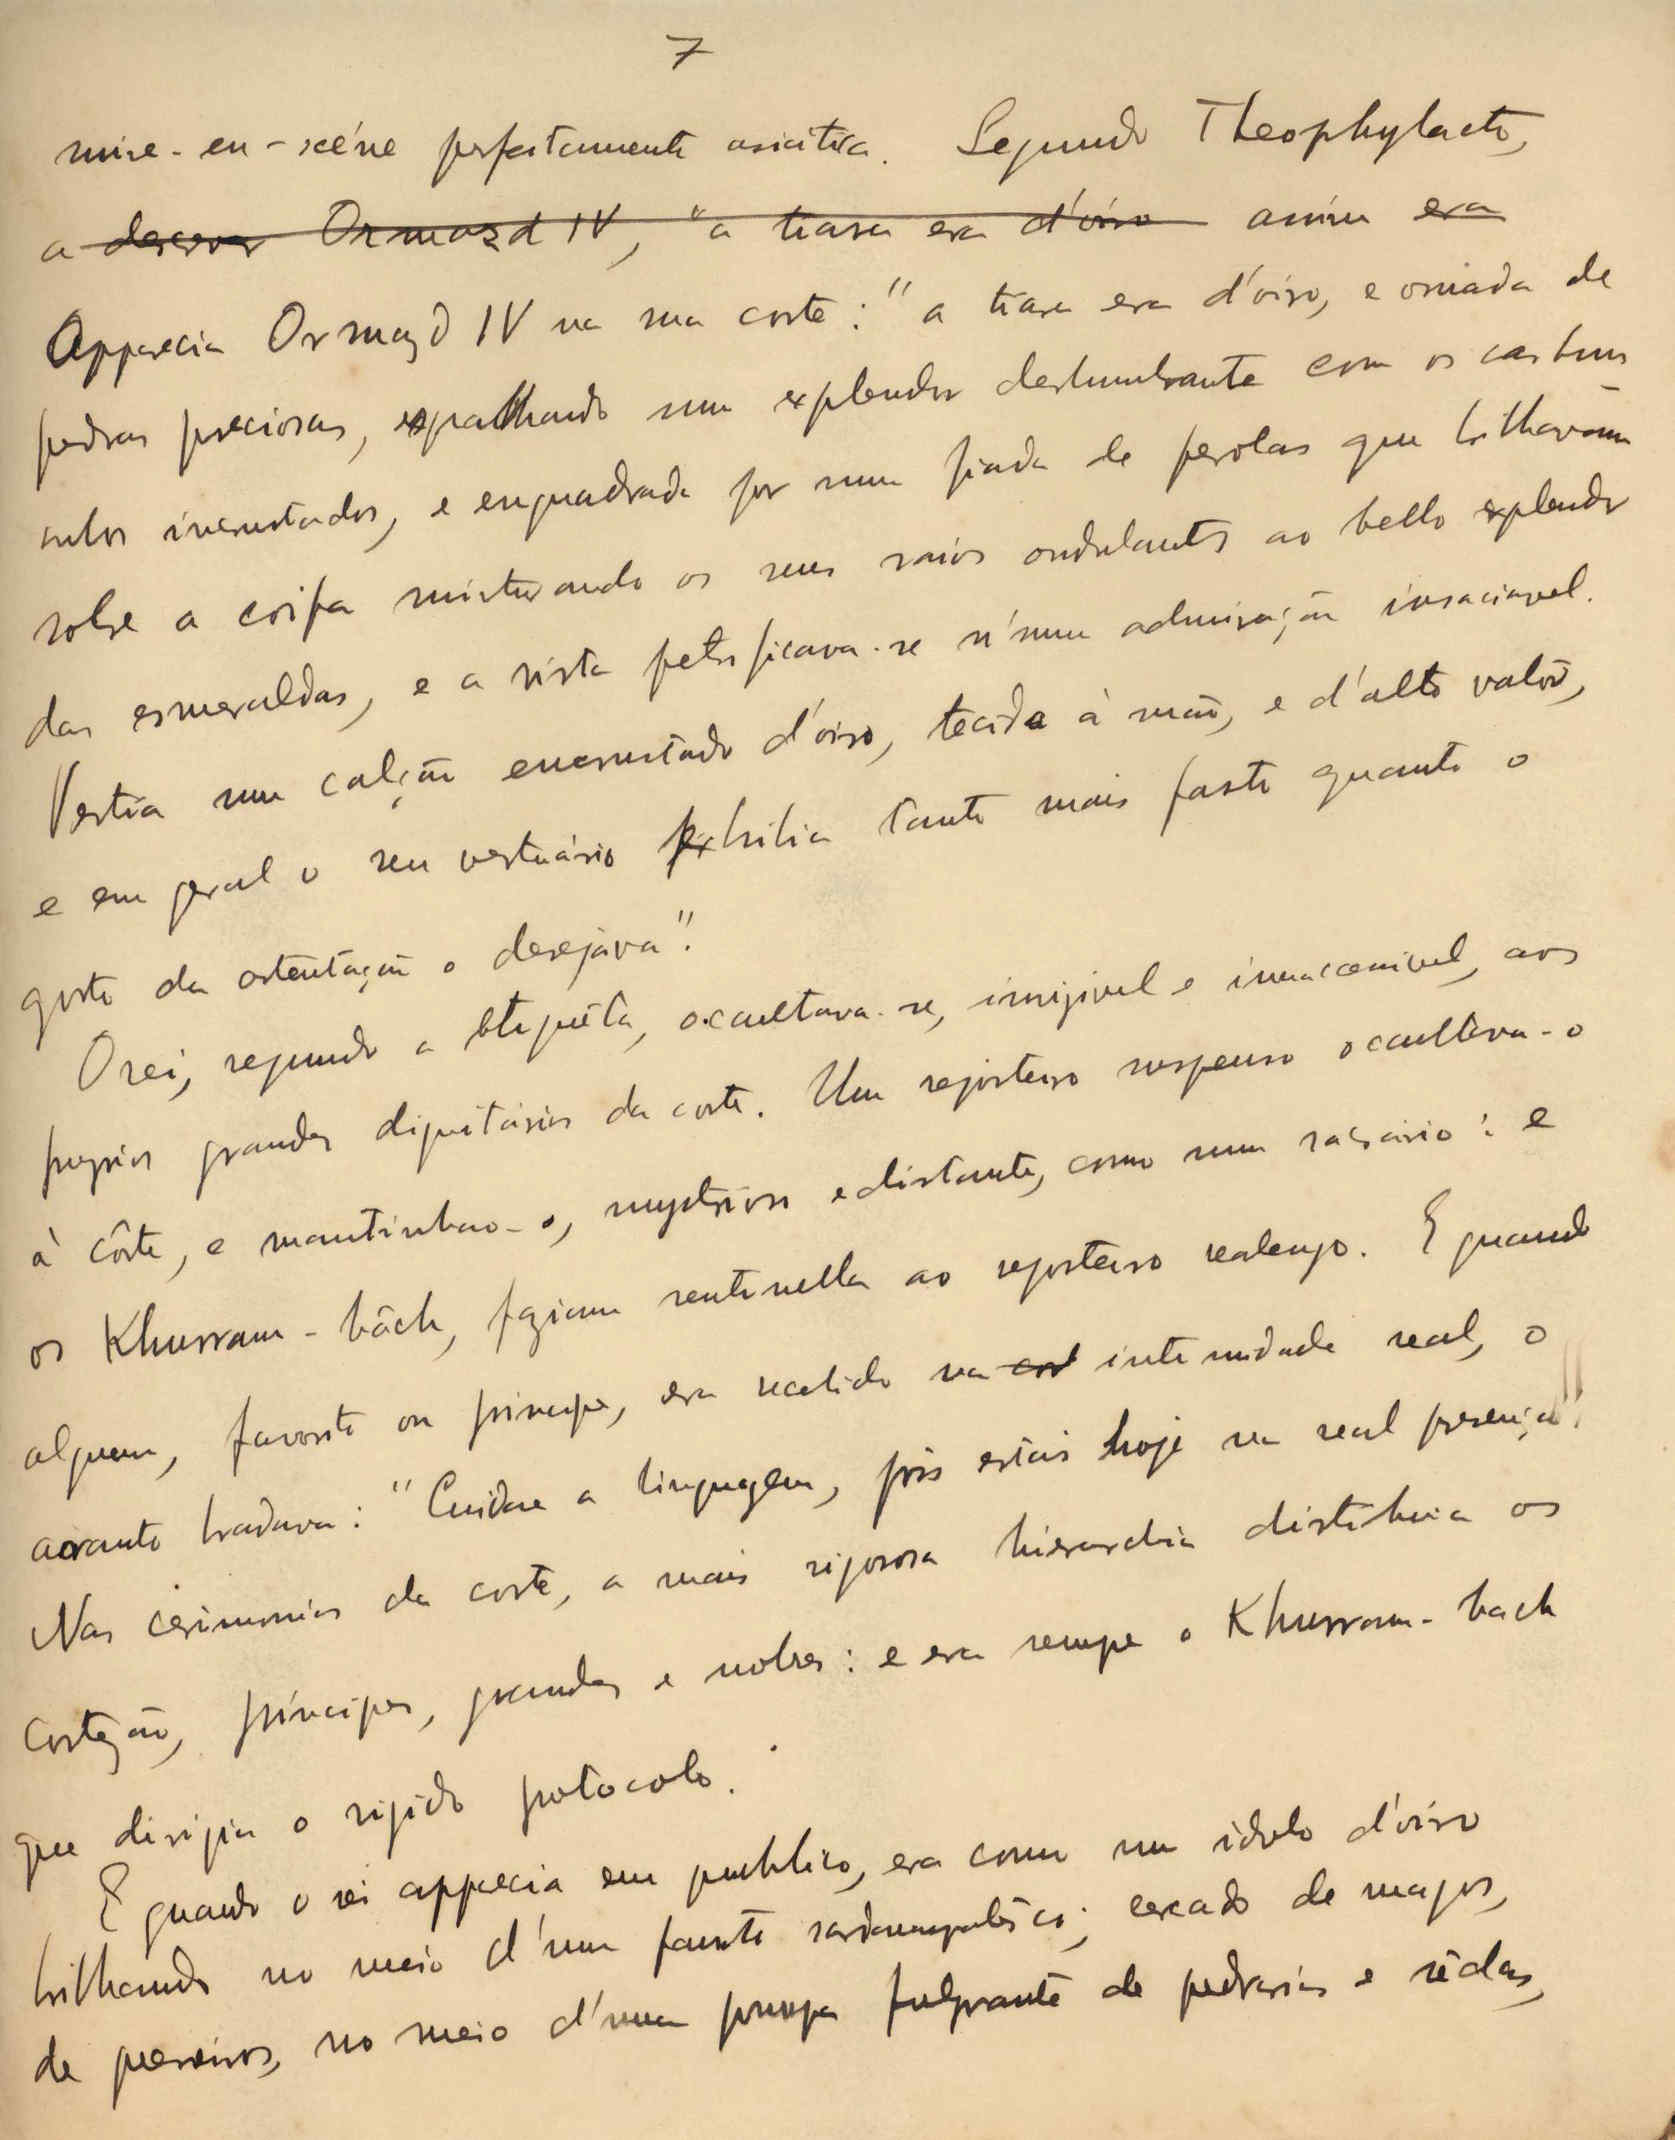 7
mise-en-scéne perfeitamente asiática. Segundo Theophylacto,
a descever Ormazd IV, "a tiara era d'oiro assim era
Apparecia Ormazd IV na sua corte: "a tiara era d'oiro, e ornada de
pedras preciosas, espalhando um explendor deslumbrante com os carbun
culos incrustados, e enquadrada por uma fiada de perolas que brilhavam
sobre a coifa misturando os seus raios ondulantes ao bello explendor
das esmeraldas, e a vista petrificava-se n'uma admiração insaciavel.
Vestia um calção encrustado d'oiro, tecido à mão, e d'alto valor,
e em geral o seu vestuário exhibia tanto mais fasto quanto o
gosto da ostentação o desejava".
O rei, segundo a etiquêta, occultava-se, invizivel e innaccessivel, aos
proprios grandes dignitários da corte. Um reposteiro suspenso occultava-o
à côrte, e mantinha-o, mysterioso e distante, como num sacrário: e
os Khurram-bâch, faziam sentinella ao reposteiro realengo. E quando
alguem, favorito ou principe, era recebido na cor intimidade real, o
arauto bradava: "Cuidae a linguagem, pois estais hoje na real presença".
Nas cerimonias da corte, a mais rigorosa hierarchia distribuia os
cortezão, príncipes, grandes e nobres: e era sempre o Khurram-bach
que dirigia o rigido protocolo.
E quando o rei apparecia em publico, era como um idolo d'oiro
brilhando no meio d'um fausto sardanapalêsco; cercado de magos,
de guerreiros, no meio d'uma pompa fulgurante de pedrarias e sêdas,